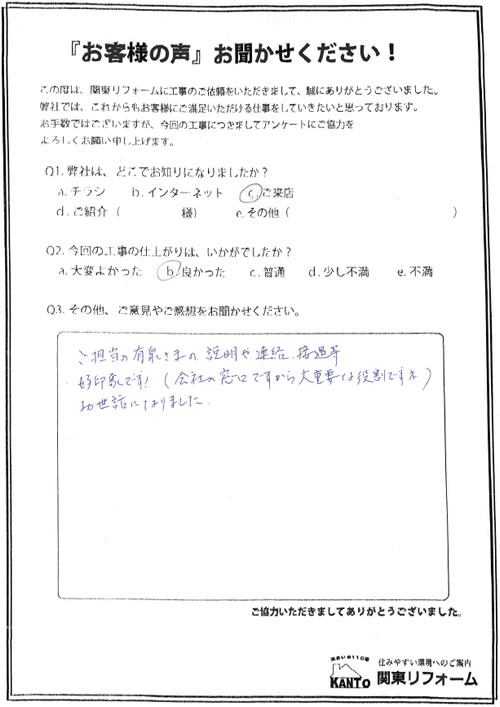 『お客様の声』お聞かせください！
この度は、関東リフォームに工事のご依頼をいただきまして、誠にありがとうございました。
弊社では、これからもお客様にご満足いただける仕事をしていきたいと思っております。
お手数ではございますが、今回の工事につきましてアンケートにご協力を
よろしくお願い申し上げます。
Q1.弊社は、どこでお知りになりましたか？
a.チラシ b.インターネット c.ご来店
d.ご紹介（ 様） e.その他（ ）
Q2.今回の工事の仕上がりは、いかがでしたか？
a.大変よかった b.良かった c.普通 d.少し不満 e.不満
Q3.その他、ご意見やご感想をお聞かせください。
ご担当の有泉さまの、説明や連絡、接遇等
好印象です！（会社の窓口ですから大重要な役割ですネ）
お世話になりました。
ご協力いただきましてありがとうございました。
住まいの110番
KANTO
住みやすい環境へのご案内
関東リフォーム